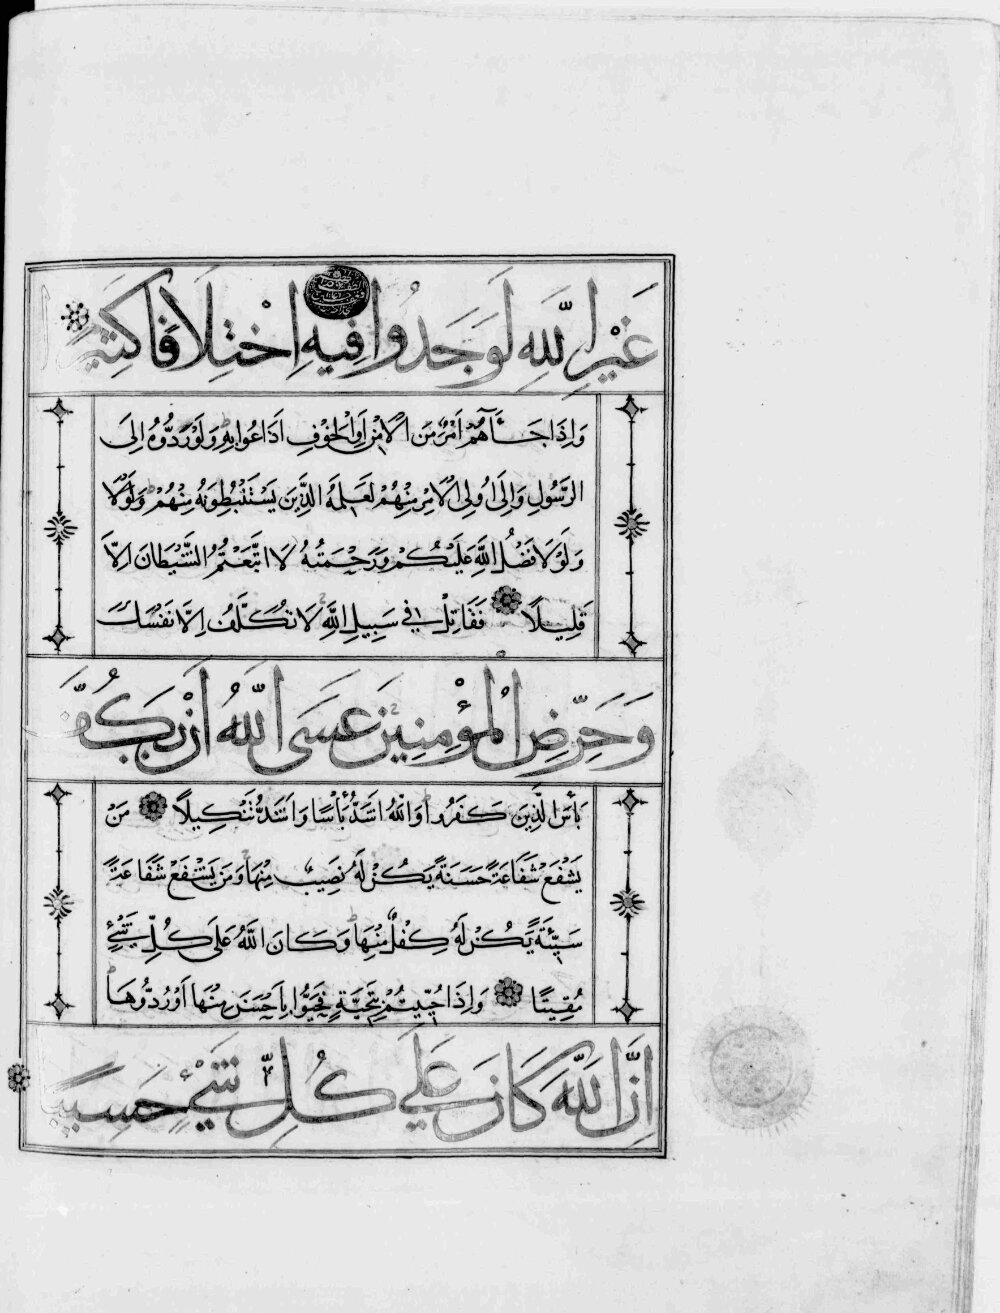 غَيْرِ اللَّهِ لَوَجَدُوا فِيهِ اخْتِلَافًا كَثِيرًا
وَإِذَا جَاءَهُمْ أَمْرٌ مِنَ الْأَمْنِ أَوِ الْخَوْفِ أَذَاعُوا بِهِ وَلَوْ رَدُّوهُ إِلَى
الرَّسُولِ وَإِلَى أُولِى الْأَمْرِ مِنْهُمْ لَعَلِمَهُ الَّذِينَ يَسْتَنْبِطُونَهُ مِنْهُمْ وَلَوْلَا
وَلَوْلَا فَضْلُ اللَّهِ عَلَيْكُمْ وَرَحْمَتُهُ لَاتَّبَعْتُمُ الشَّيْطَانَ إِلَّا
قَلِيلًا فَقَاتِلْ فِي سَبِيلِ اللَّهِ لَا تُكَلَّفُ إِلَّا نَفْسَكَ
وَحَرِّضِ الْمُؤْمِنِينَ عَسَى اللَّهُ أَنْ يَكُفَّ
بَأْسَ الَّذِينَ كَفَرُوا وَاللَّهُ أَشَدُّ بَأْسًا وَأَشَدُّ تَنْكِيلًا مَنْ
يَشْفَعْ شَفَاعَةً حَسَنَةً يَكُنْ لَهُ نَصِيبٌ مِنْهَا وَمَنْ يَشْفَعْ شَفَاعَةً
سَيِّئَةً يَكُنْ لَهُ كِفْلٌ مِنْهَا وَكَانَ اللَّهُ عَلَى كُلِّ شَيْءٍ
مُقِيتًا وَإِذَا حُيِّيتُمْ بِتَحِيَّةٍ فَحَيُّوا بِأَحْسَنَ مِنْهَا أَوْ رُدُّوهَا
إِنَّ اللَّهَ كَانَ عَلَى كُلِّ شَيْءٍ حَسِيبًا